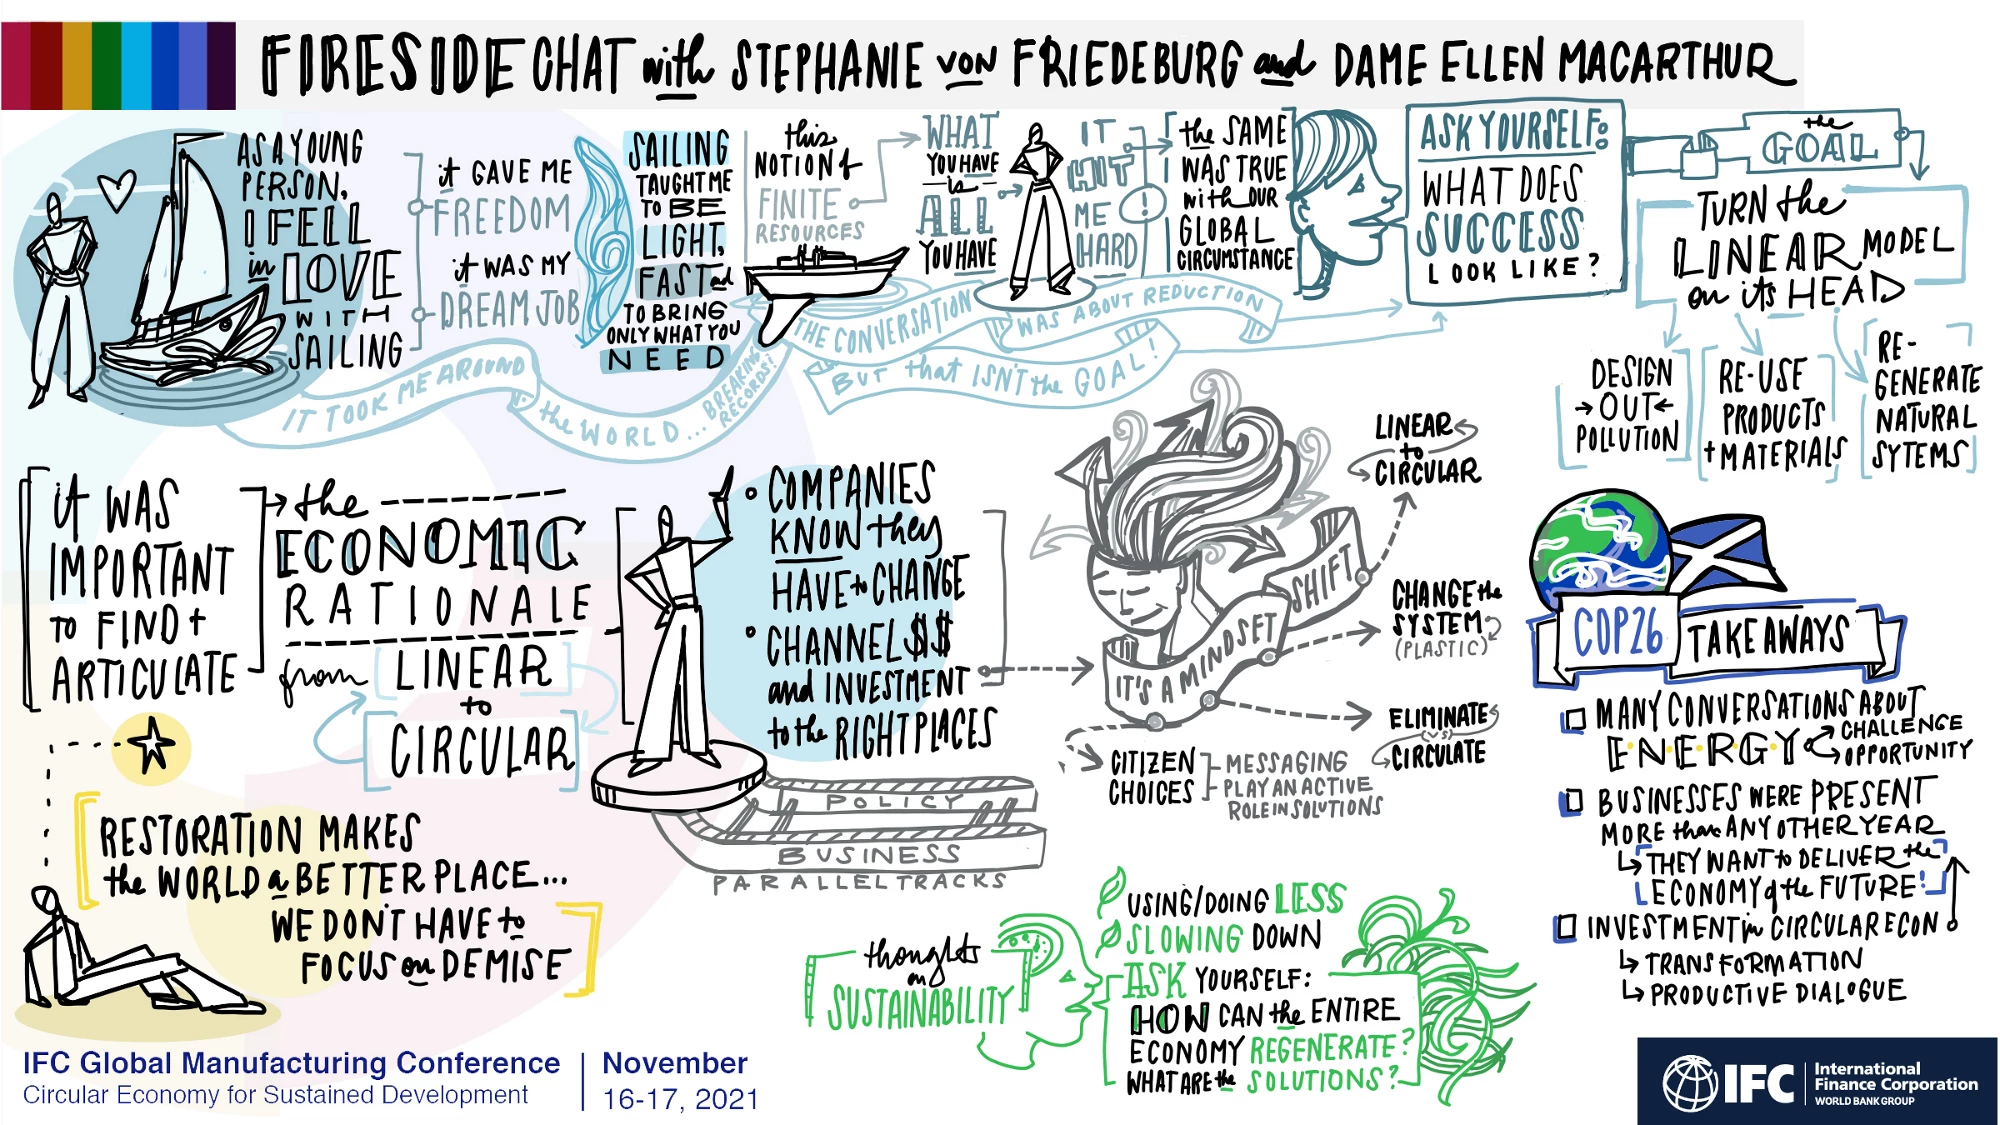 FIRESIDE CHAT with STEPHANIE VON FRIEDEBURG and DAME ELLEN MACARTHUR
AS A YOUNG
PERSON,
I FELL
in LOVE
WITH
SAILING
it GAVE ME
FREEDOM
it WAS MY
DREAM JOB
IT TOOK ME AROUND
the WORLD...
BREAKING
RECORDS?
SAILING
TAUGHT ME
TO BE
LIGHT,
FAST and
TO BRING
ONLY WHAT YOU
NEED
this
NOTION of
FINITE
RESOURCES
WHAT
YOU HAVE
is
ALL
YOU HAVE
IT
HIT
ME
HARD
!
the SAME
WAS TRUE
with OUR
GLOBAL
CIRCUMSTANCE
THE CONVERSATION
WAS ABOUT REDUCTION
BUT that ISN'T the GOAL!
ASK YOURSELF:
WHAT DOES
SUCCESS
LOOK LIKE?
the
GOAL
TURN the
LINEAR MODEL
on its HEAD
DESIGN
OUT
POLLUTION
RE-USE
PRODUCTS
+ MATERIALS
RE-
GENERATE
NATURAL
SYTEMS
it WAS
IMPORTANT
TO FIND +
ARTICULATE
the
ECONOMIC
RATIONALE
from LINEAR
to
CIRCULAR
• COMPANIES
KNOW they
HAVE to CHANGE
• CHANNEL $$
and INVESTMENT
to the RIGHT PLACES
POLICY
BUSINESS
PARALLEL TRACKS
IT'S A MINDSET SHIFT
LINEAR
to
CIRCULAR
CHANGE the
SYSTEM
(PLASTIC)
ELIMINATE
(VS)
CIRCULATE
CITIZEN
CHOICES
MESSAGING
PLAY AN ACTIVE
ROLE IN SOLUTIONS
COP26 TAKEAWAYS
MANY CONVERSATIONS ABOUT
ENERGY
CHALLENGE
OPPORTUNITY
BUSINESSES WERE PRESENT
MORE than ANY OTHER YEAR
THEY WANT to DELIVER the
ECONOMY of the FUTURE!
INVESTMENT in CIRCULAR ECON
TRANSFORMATION
PRODUCTIVE DIALOGUE
RESTORATION MAKES
the WORLD a BETTER PLACE...
WE DON'T HAVE to
FOCUS on DEMISE
thoughts
on
SUSTAINABILITY
USING/DOING LESS
SLOWING DOWN
ASK YOURSELF:
HOW CAN the ENTIRE
ECONOMY REGENERATE?
WHAT ARE the SOLUTIONS?
IFC Global Manufacturing Conference
Circular Economy for Sustained Development
November
16-17, 2021
IFC
International
Finance Corporation
WORLD BANK GROUP